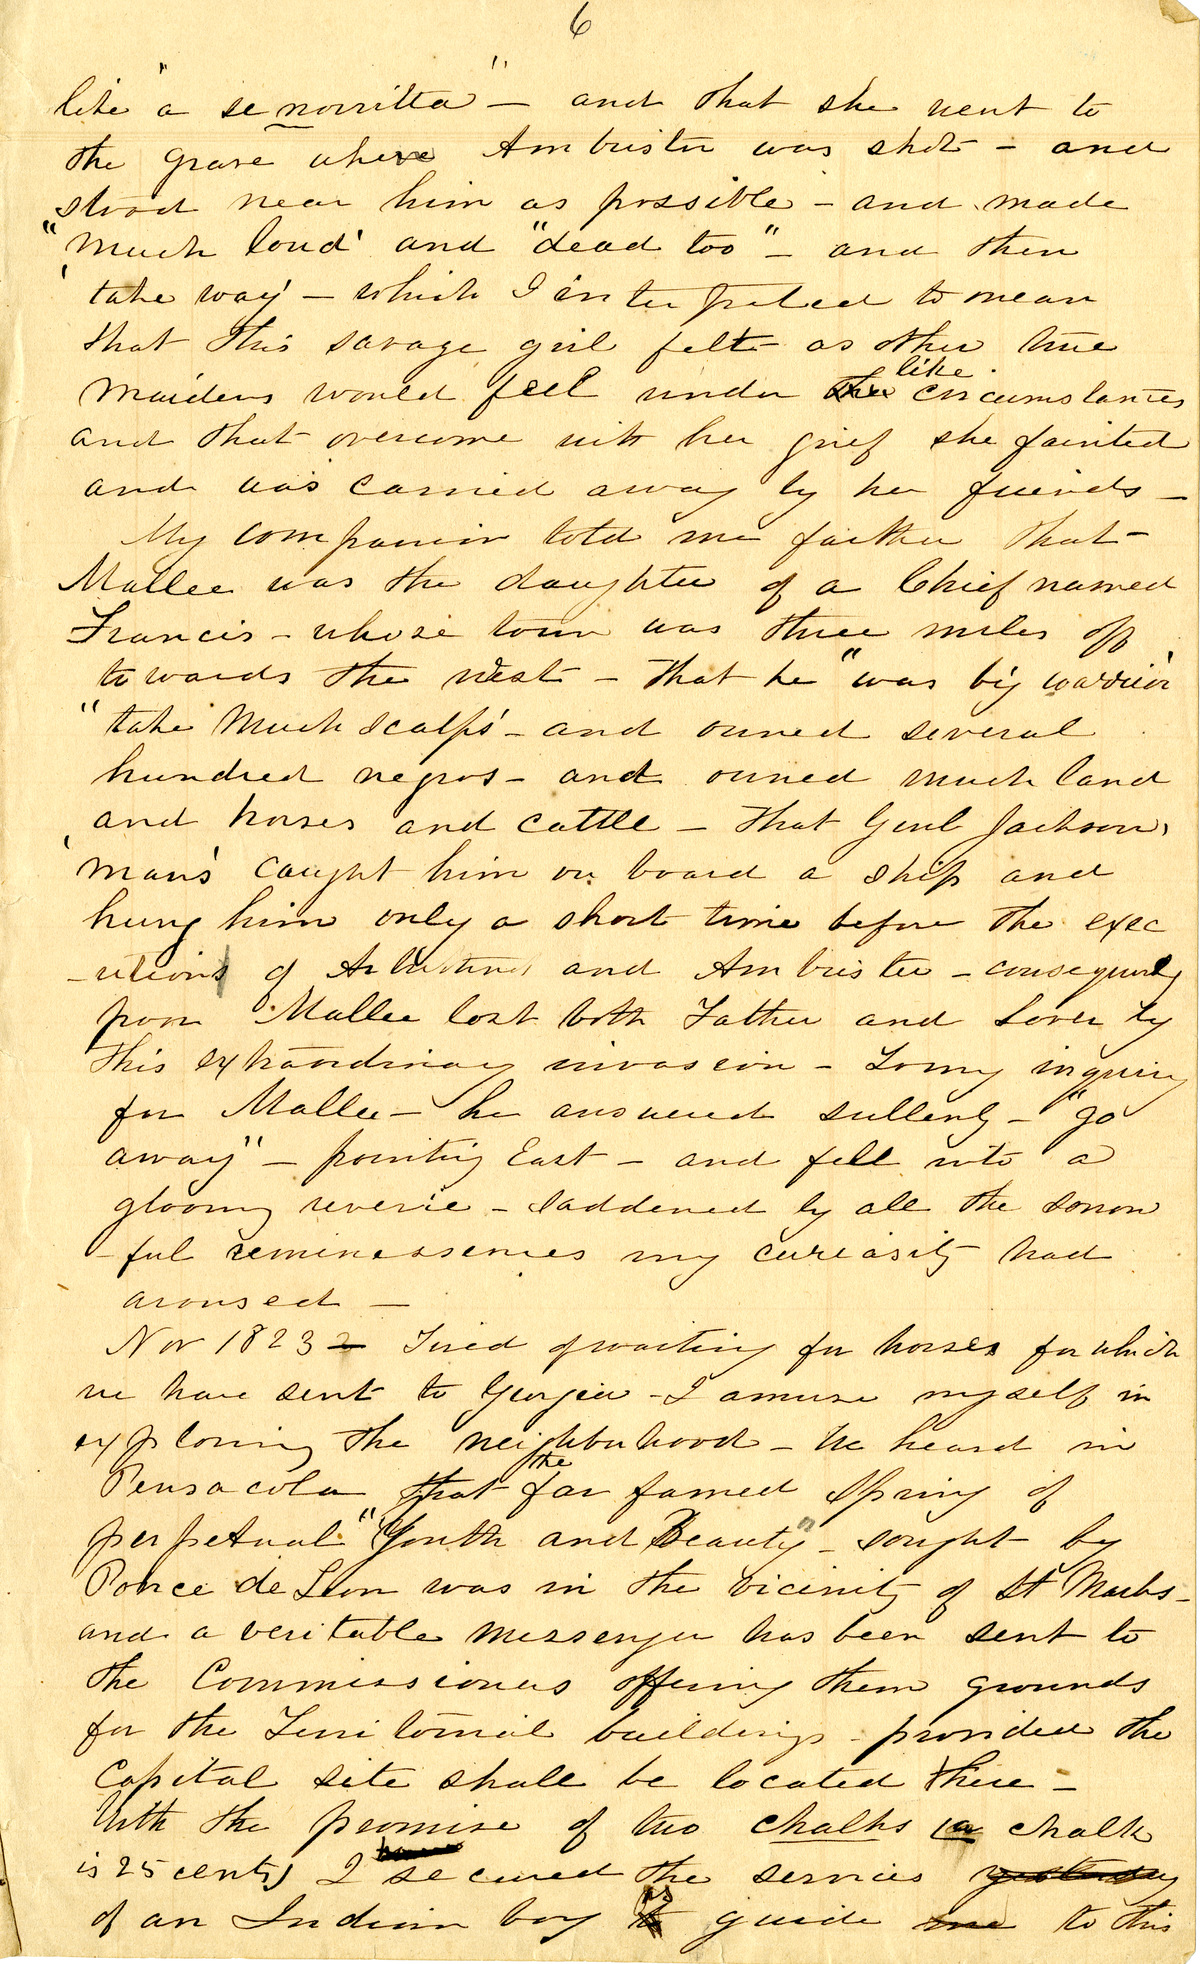 6
like "a senorritta" – and that she went to
the grave where Ambrister was shot – and
stood near him as possible – and made
"much loud' and "dead too" – and then
'take way' – which I interpreted to mean
that this savage girl felt as other true
maidens would feel under the like circumstances
and that overcome with her grief she fainted
and was carried away by her friends –
My companion told me farther that –
Mallee was the daughter of a Chief named
Francis – whose town was three miles off
towards the west – that he "was big warrior
"take much scalps' – and owned several
hundred negros – and owned much land
and horses and cattle – that Genl Jackson,
'mans' caught him on board a ship and
hung him only a short time before the exec
-utions of Arbuthnot and Ambrister – consequently
poor Mallee lost both Father and Lover by
this extraordinary invasion – To my inquiry
for Mallee – he answered sullenly – "go
away" – pointing East – and fell into a
gloomy reverie – saddened by all the sorrow
-ful reminessences my curiosity had
aroused –
Nov 1823 – Tired of waiting for horses for which
we have sent to Georgia – I amuse myself in
exploring the neighborhood – We heard in
Pensacola that the far famed Spring of
perpetual "Youth and Beauty" – sought by
Ponce de Leon was in the vicinity of St Marks –
and a veritable messenger has been sent to
the Commissioners offering them grounds
for the Territorial buildings – provided the
Capital site shall be located there –
With the promise of two chalks (a chalk
is 25 cents) I secured the services yesterday
of an Indian boy as guide me to this